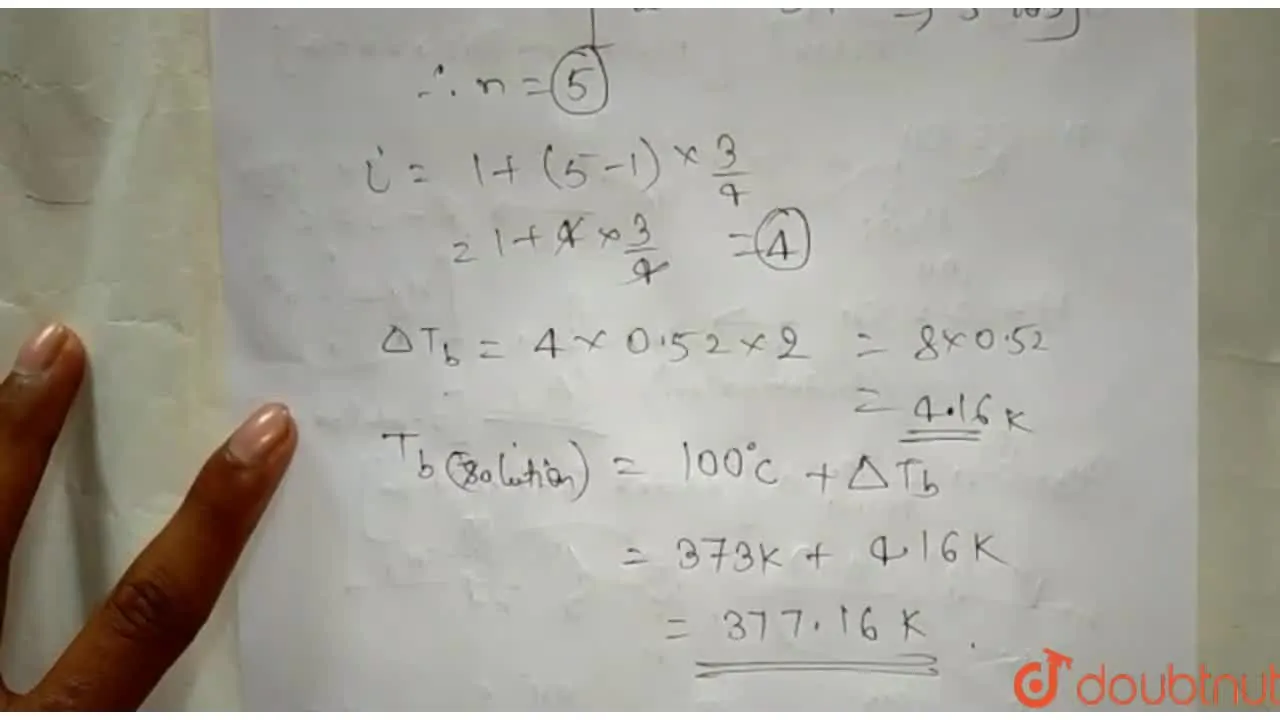 ∴ n = 5
i = 1 + (5-1) × 3/4
= 1 + 4 × 3/4 = 4
ΔTb = 4 × 0.52 × 2 = 8 × 0.52
= 4.16 K
Tb (solution) = 100°C + ΔTb
= 373K + 4.16K
= 377.16 K
doubtnut